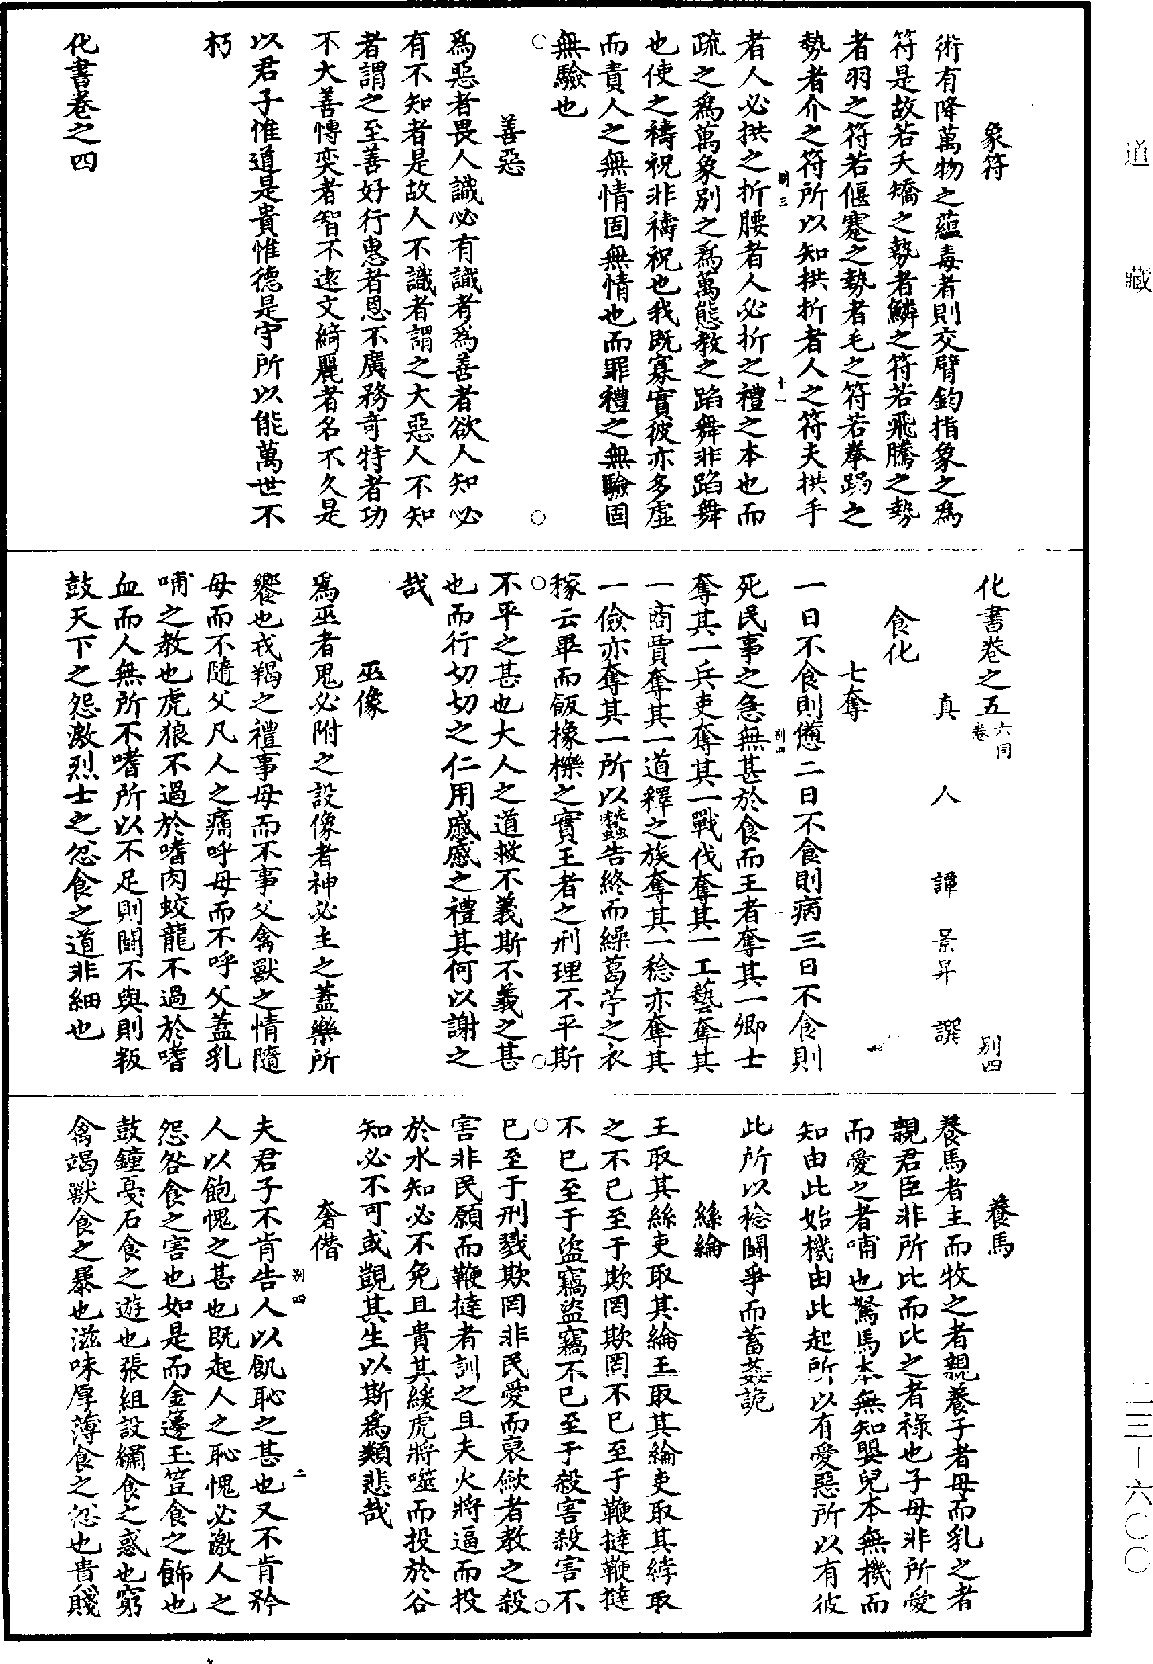 道藏
象符
術有降萬物之蘊毒者則交臂鈎指象之爲
符是故若夭矯之勢者鱗之符若飛騰之勢
者羽之符若偃蹇之勢者毛之符若拳跼之
勢者介之符所以知拱折者人之符夫拱手
別三
十一
者人必拱之折腰者人必折之禮之本也而
疏之爲萬象別之爲萬態教之蹈舞非蹈舞
也使之禱祝非禱祝也我既寡實彼亦多虛
而責人之無情固無情也而罪禮之無驗固
無驗也
善惡
爲惡者畏人識必有識者爲善者欲人知必
有不知者是故人不識者謂之大惡人不知
者謂之至善好行惠者恩不廣務奇特者功
不大善博奕者智不遠文綺麗者名不久是
以君子惟道是貴惟德是守所以能萬世不
朽
化書卷之四
化書卷之五 六同卷
別四
真人譚景昇譔
食化
七奪
一日不食則憊二日不食則病三日不食則
死民事之急無甚於食而王者奪其一卿士
別四
奪其一兵吏奪其一戰伐奪其一工藝奪其
一商賈奪其一道釋之族奪其一稔亦奪其
一儉亦奪其一所以蠶告終而繰葛苧之衣
稼云畢而飯橡櫟之實王者之刑理不平斯
不平之甚也大人之道救不義斯不義之甚
也而行切切之仁用慼慼之禮其何以謝之
哉
巫像
爲巫者鬼必附之設像者神必主之蓋樂所
饗也戎羯之禮事母而不事父禽獸之情隨
母而不隨父凡人之痛呼母而不呼父蓋乳
哺之教也虎狼不過於嗜肉蛟龍不過於嗜
血而人無所不嗜所以不足則鬪不與則叛
鼓天下之怨激烈士之忿食之道非細也
養馬
養馬者主而牧之者親養子者母而乳之者
親君臣非所比而比之者祿也子母非所愛
而愛之者哺也駑馬本無知嬰兒本無機而
知由此始機由此起所以有愛惡所以有彼
此所以稔鬪爭而蓄姦詭
絲綸
王取其絲吏取其綸王取其綸吏取其綍取
之不已至于欺罔欺罔不已至于鞭撻鞭撻
不已至于盜竊盜竊不已至于殺害殺害不
已至于刑戮欺罔非民愛而裒歛者教之殺
害非民願而鞭撻者訓之且夫火將逼而投
於水知必不免且貴其緩虎將噬而投於谷
知必不可或覬其生以斯爲類悲哉
奢僭
夫君子不肯告人以飢恥之甚也又不肯矜
別四
二
人以飽愧之甚也既起人之恥愧必激人之
怨咎食之害也如是而金籩玉豆食之飾也
鼓鐘戞石食之遊也張組設繡食之惑也窮
禽竭獸食之暴也滋味厚薄食之忿也貴賤
二三—六〇〇